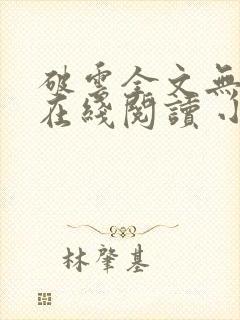 破雲全文無
在綫閱讀 小
林肇基